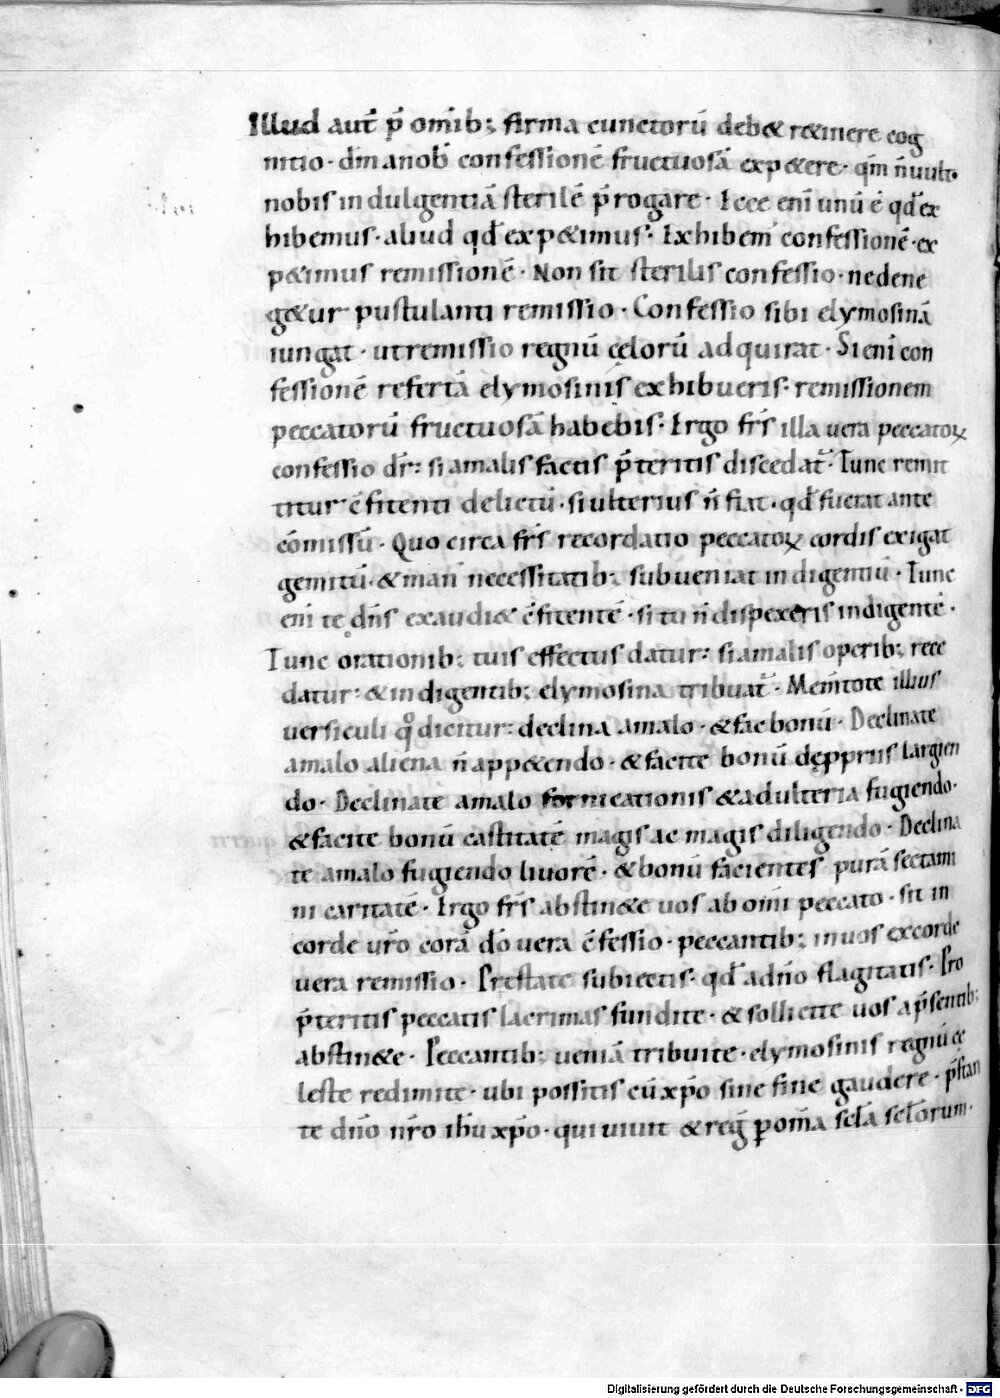 Illud aut̄ p̄ omīb; firma cunctorū deb& r&inere cog
nitio · dm̄ a nob̄ confessionē fructuosā exp&ere · qm̄ n̄ uult
nobis indulgentiā sterilē p̄rogare · Ecce enī unū ē qđ ex
hibemus · aliud qđ exp&imus · Exhibem̄ confessionē · ex
p&imus remissionē · Non sit sterilis confessio · ne dene
g&ur pustulanti remissio · Confessio sibi elymosinā
iungat · ut remissio regnū cęlorū adquirat · Si enī con
fessionē refertā elymosinis exhibueris · remissionem
peccatorū fructuosā habebis · Ergo frs̄ illa uera peccatoꝝ
confessio dr̄: si a malis factis p̄teritis discedat᷑ · Tunc remit
titur c̄fitenti delictū · si ulterius n̄ fiat · qđ fuerat ante
cōmissū · Quo circa frs̄ recordatio peccatoꝝ cordis exigat
gemitū · & man̄ necessitatib; subueniat indigentiū · Tunc
enī te dn̄s exaudi& c̄fitentē · si tu n̄ dispexeris indigentē ·
Tunc orationib; tuis effectus datur: si a malis operib; rece
datur: & indigentib; elymosina tribuat᷑ · Mem̄tote illius
uersiculi qͦ dicitur: declina a malo · & fac bonū · Declinate
a malo aliena n̄ app&endo · & facite bonū dę ppriis largien
do · Declinate a malo fornicationis & adulteria fugiendo ·
& facite bonū castitatē magis ac magis diligendo · Declina
te a malo fugiendo liuorē · & bonū facientes purā sectami
ni caritatē · Ergo frs̄ abstin&e uos ab omī peccato · sit in
corde ur̄o corā dō uera c̄fessio · peccantib; in uos ex corde
uera remissio · Prestate subiectis · qđ a dn̄o flagitatis · Pro
p̄teritis peccatis lacrimas fundite · & sollicite uos a p̄sentib;
abstin&e · Peccantib; ueniā tribuite · elymosinis regnū cę
leste redimite · ubi possitis cū xp̄o sine fine gaudere · p̄stan
te dn̄o nr̄o ihū xp̄o · qui uiuit & reḡ ꝑ om̄a scl̄a scl̄orum ·
Digitalisierung gefördert durch die Deutsche Forschungsgemeinschaft - DFG